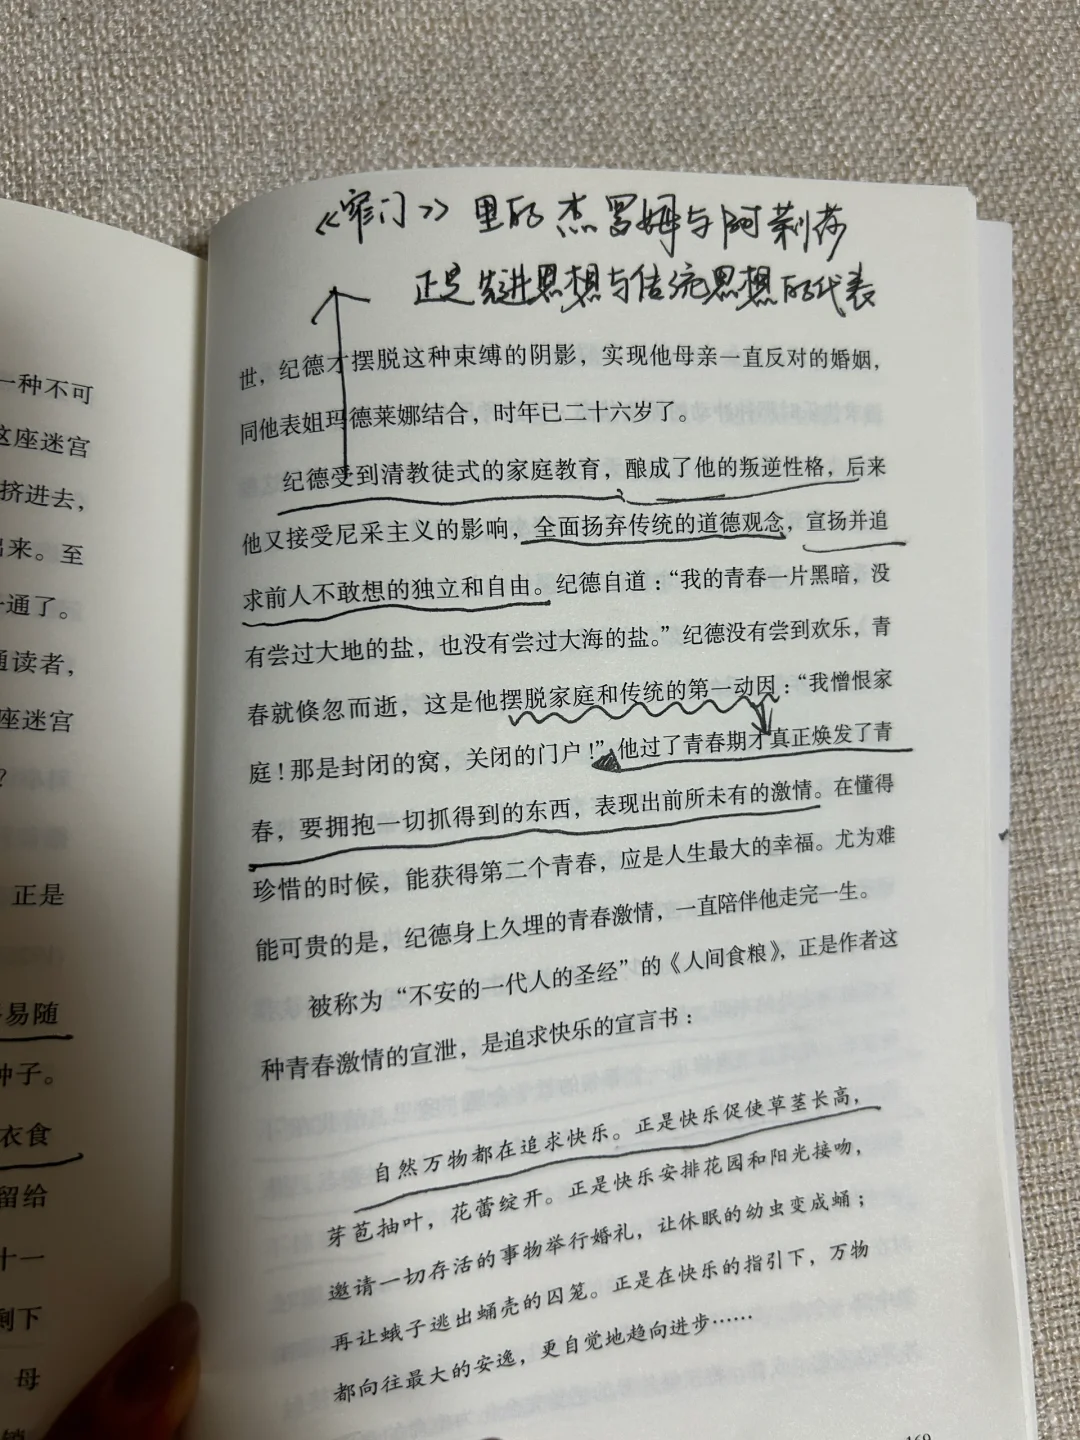 一种不可
这座迷宫
挤进去,
出来。至
通了。
通读者,
座迷宫
?
正是
易随
种子。
衣食
留给
十一
剩下
母
《窄门》里的杰罗姆与阿莉莎
正是先进思想与传统思想的代表
世，纪德才摆脱这种束缚的阴影，实现他母亲一直反对的婚姻，
同他表姐玛德莱娜结合，时年已二十六岁了。
纪德受到清教徒式的家庭教育，酿成了他的叛逆性格，后来
他又接受尼采主义的影响，全面扬弃传统的道德观念，宣扬并追
求前人不敢想的独立和自由。纪德自道：“我的青春一片黑暗，没
有尝过大地的盐，也没有尝过大海的盐。”纪德没有尝到欢乐，青
春就倏忽而逝，这是他摆脱家庭和传统的第一动因：“我憎恨家
庭！那是封闭的窝，关闭的门户！”他过了青春期才真正焕发了青
春，要拥抱一切抓得到的东西，表现出前所未有的激情。在懂得
珍惜的时候，能获得第二个青春，应是人生最大的幸福。尤为难
能可贵的是，纪德身上久埋的青春激情，一直陪伴他走完一生。
被称为“不安的一代人的圣经”的《人间食粮》，正是作者这
种青春激情的宣泄，是追求快乐的宣言书：
自然万物都在追求快乐。正是快乐促使草茎长高，
芽苞抽叶，花蕾绽开。正是快乐安排花园和阳光接吻，
邀请一切存活的事物举行婚礼，让休眠的幼虫变成蛹；
再让蛾子逃出蛹壳的囚笼。正是在快乐的指引下，万物
都向往最大的安逸，更自觉地趋向进步……
169